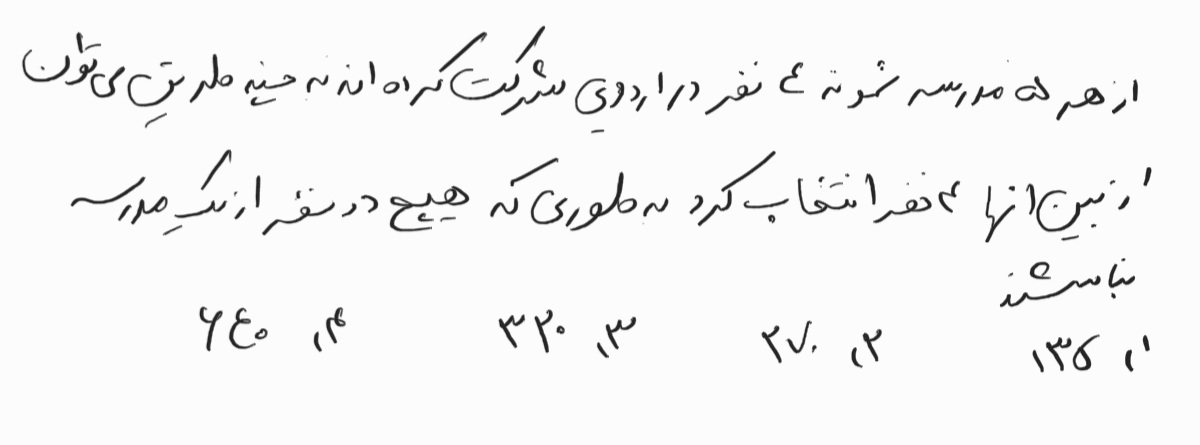 از هر ۵ مدرسه نمونه ٤ نفر در اردوی شرکت کرده اند به چند طریق می توان
از بین انها ۳ نفر انتخاب کرد به طوری که هیچ دو نفر از یک مدرسه
نباشند
۱, ۱۳۵ ۲, ۲۷۰ ۳, ۳۲۰ ۴, ۶٤۰